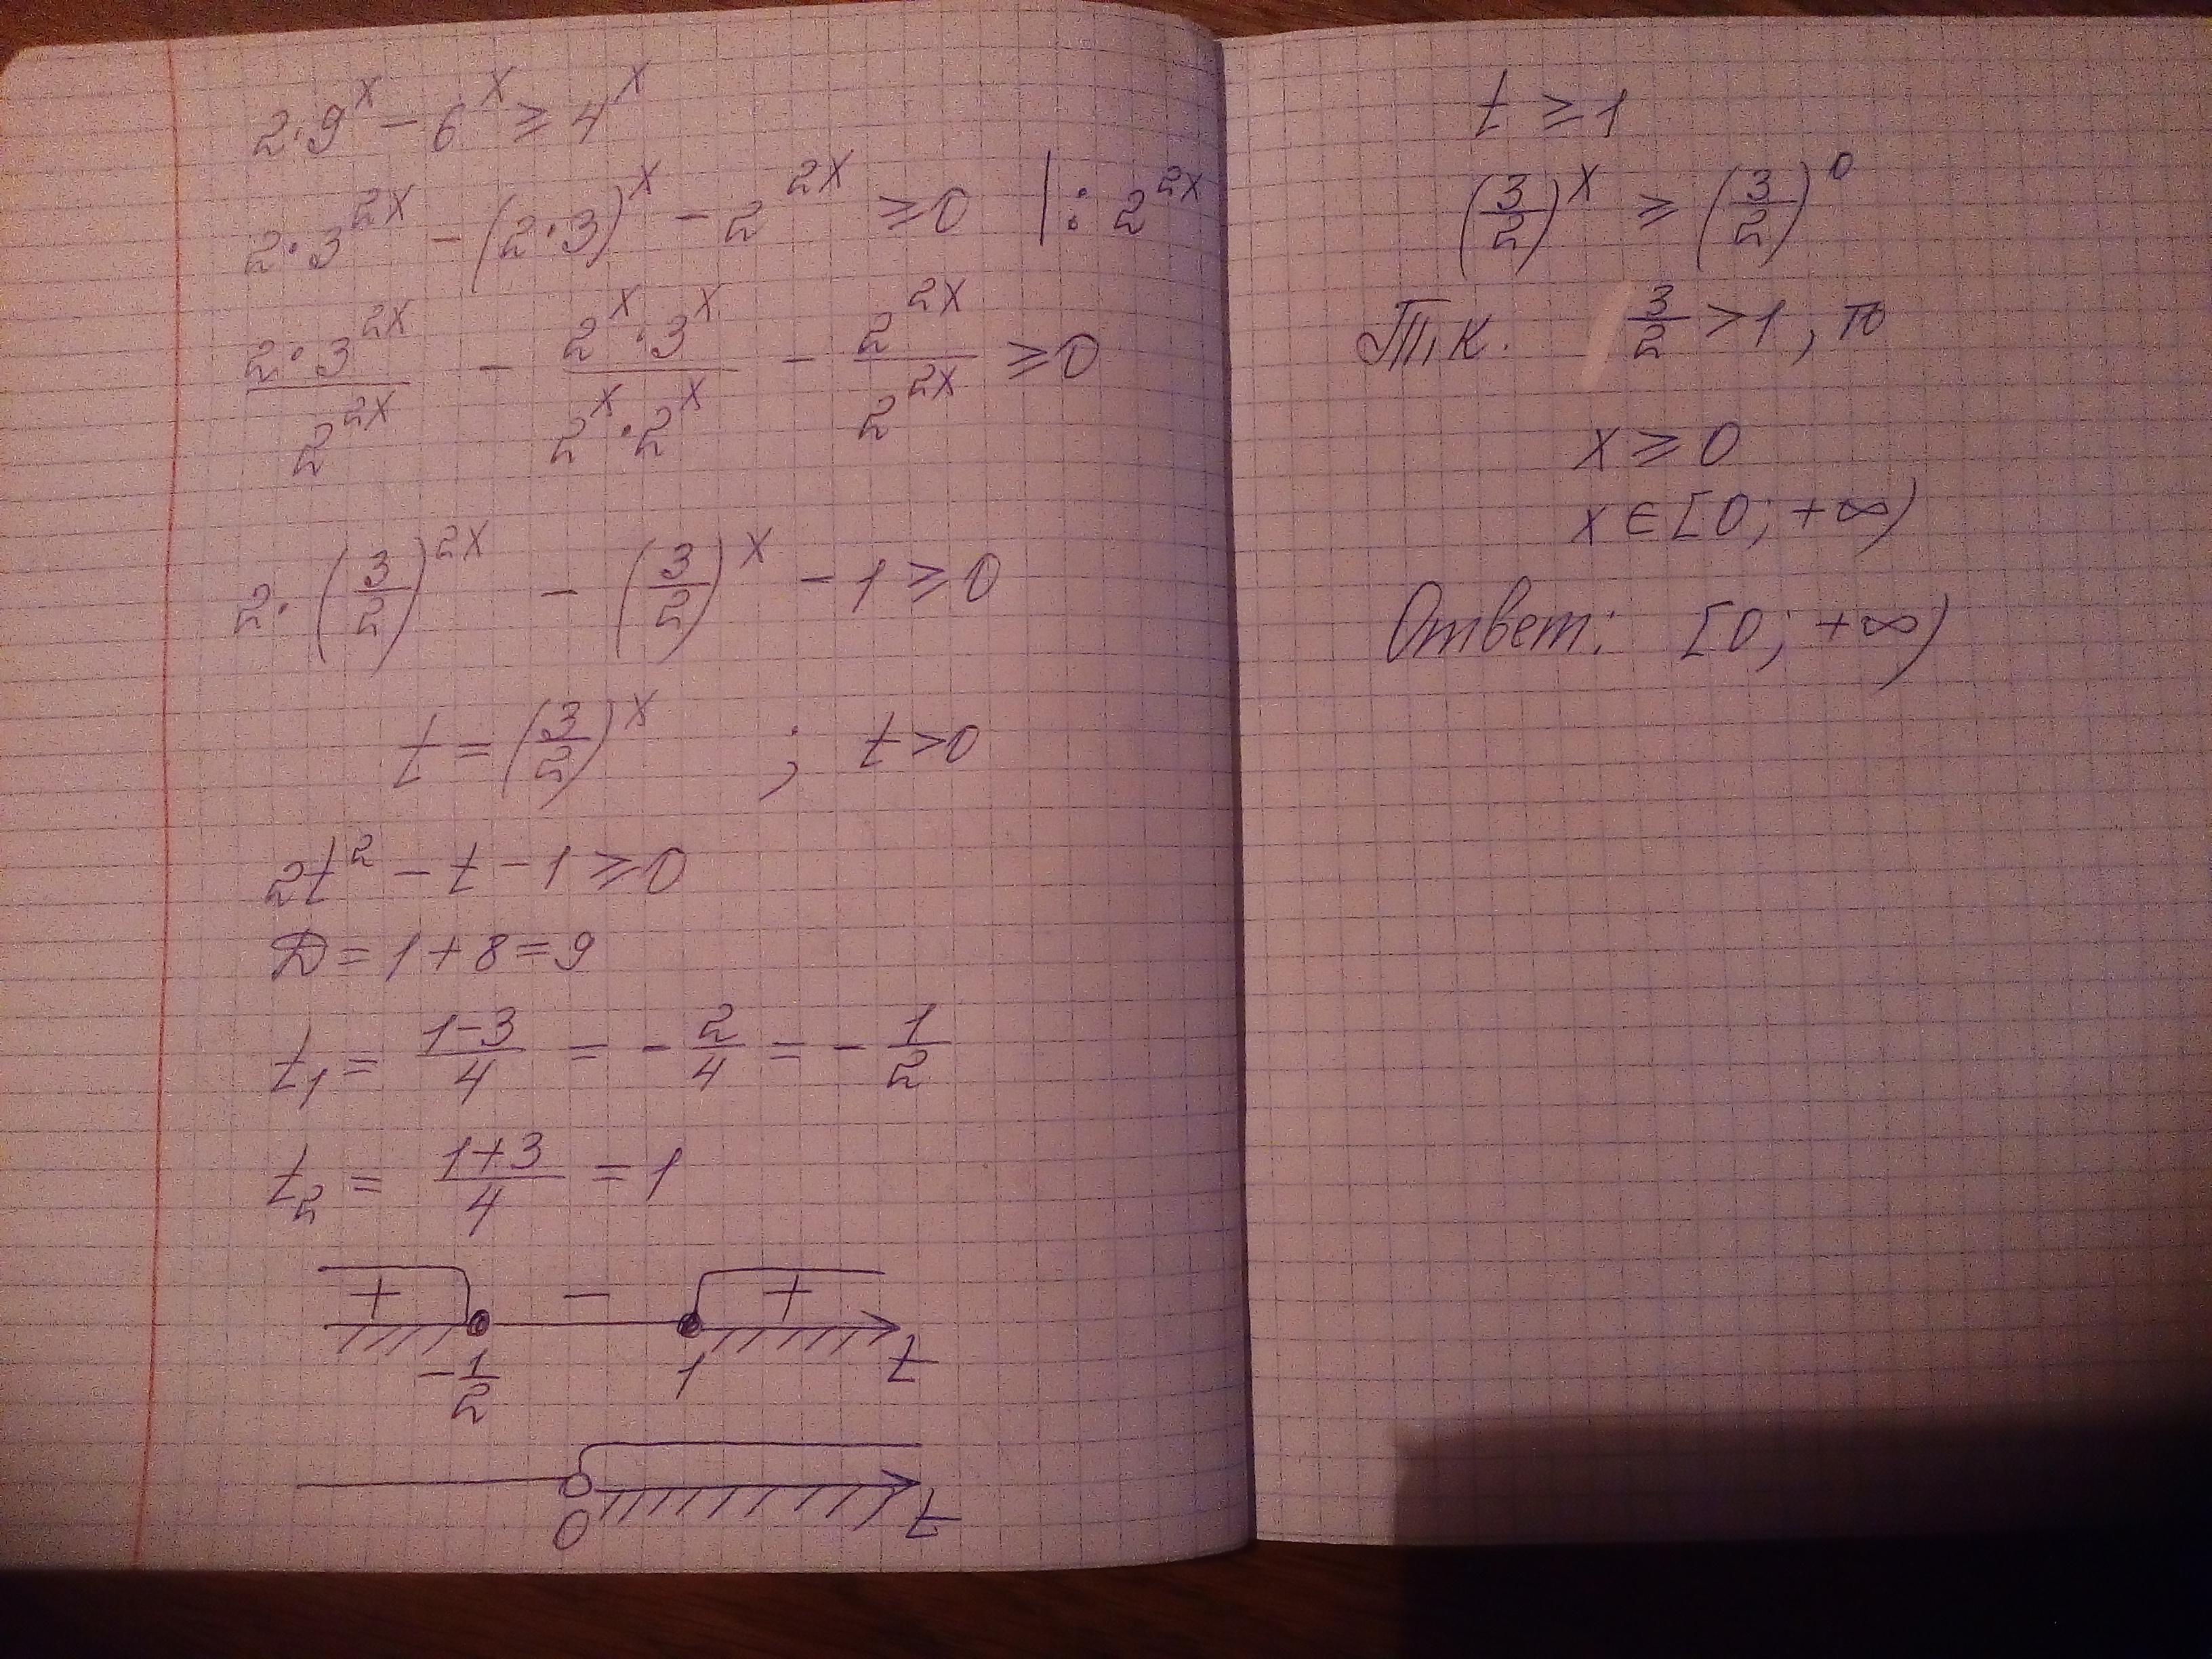 2·9^x − 6^x ≥ 4^x
2·3^{2x} − (2·3)^x − 2^{2x} ≥ 0 | : 2^{2x}
\frac{2·3^{2x}}{2^{2x}} − \frac{2^x·3^x}{2^x·2^x} − \frac{2^{2x}}{2^{2x}} ≥ 0
2·(\frac{3}{2})^{2x} − (\frac{3}{2})^x − 1 ≥ 0
t = (\frac{3}{2})^x ; t > 0
2t^2 − t − 1 ≥ 0
D = 1 + 8 = 9
t_1 = \frac{1−3}{4} = −\frac{2}{4} = −\frac{1}{2}
t_2 = \frac{1+3}{4} = 1
+ − +
−\frac{1}{2} 1 t
0 t
t ≥ 1
(\frac{3}{2})^x ≥ (\frac{3}{2})^0
Т.к. \frac{3}{2} > 1, то
x ≥ 0
x ∈ [0; +∞)
Ответ: [0; +∞)